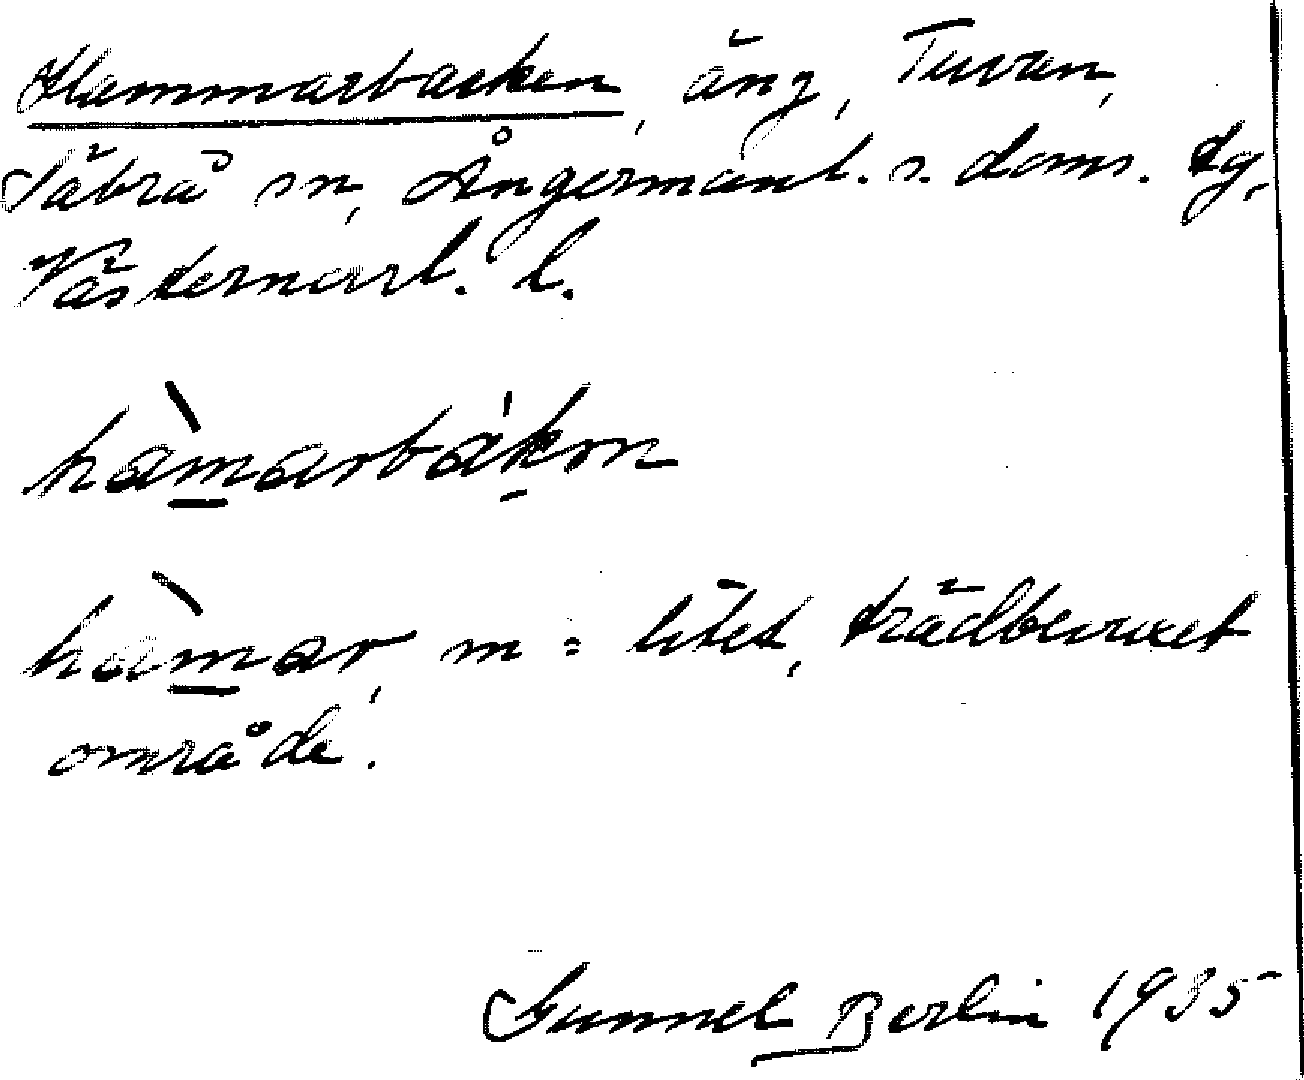 Hammarbacken, äng, Tuvan,
Säbrå sn, Ångermanl. s. doms. tg,
Västernorrl. l.
hàmarbákɷn
hàmar, m = litet, trädbevuxet
område.
Gunnel Berlin 1935